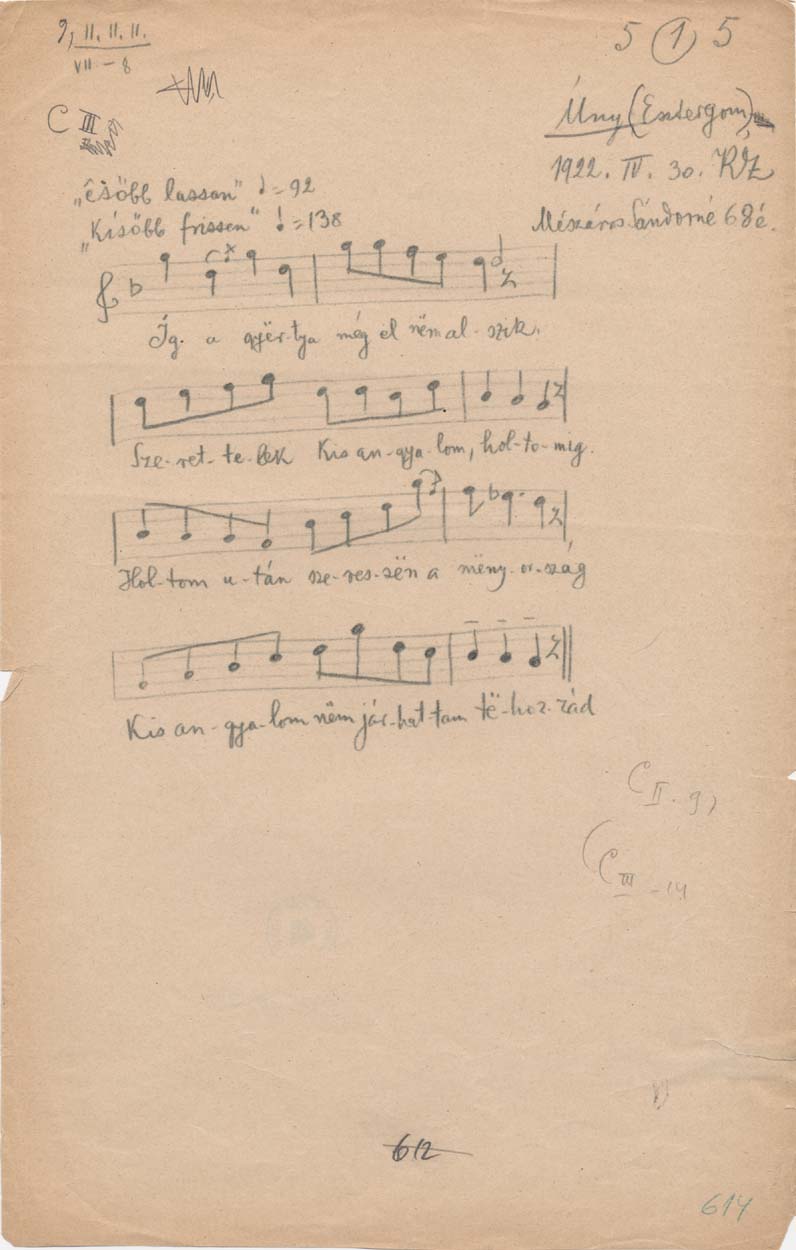 9, II. II. II.
5 (1) 5
VII - 8
C III
Úny (Esztergom)
1922. IV. 30. KZ
"Később lassan" ♩=92
"Később frissen" ♩=138
Mészáros Sándorné 68é.
Ég a gyër-tya még el nëm al-szik.
Sze-ret-te-lek Kis an-gya-lom, hol-to-mig.
Hol-tom u-tán sze-res-sën a mëny-or-szág
Kis an-gya-lom nëm jár-hat-tam të-hoz-zád
C II. 9)
(C III - 14
612
614